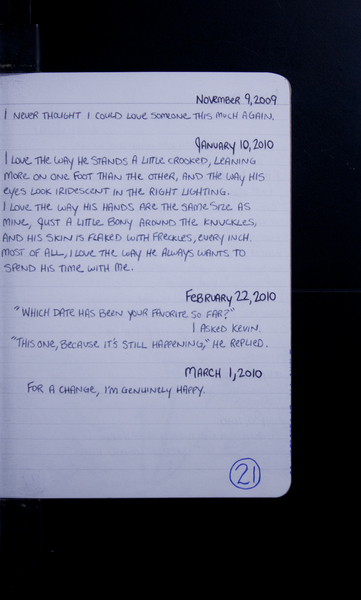 November 9, 2009
I never thought I could love someone this much again.
January 10, 2010
I love the way he stands a little crooked, leaning
more on one foot than the other, and the way his
eyes look iridescent in the right lighting.
I love the way his hands are the same size as
mine, just a little bony around the knuckles,
and his skin is flaked with freckles, every inch.
Most of all, I love the way he always wants to
spend his time with me.
February 22, 2010
"Which date has been your favorite so far?"
I asked Kevin.
"This one, because it's still happening," he replied.
March 1, 2010
For a change, I'm genuinely happy.
21